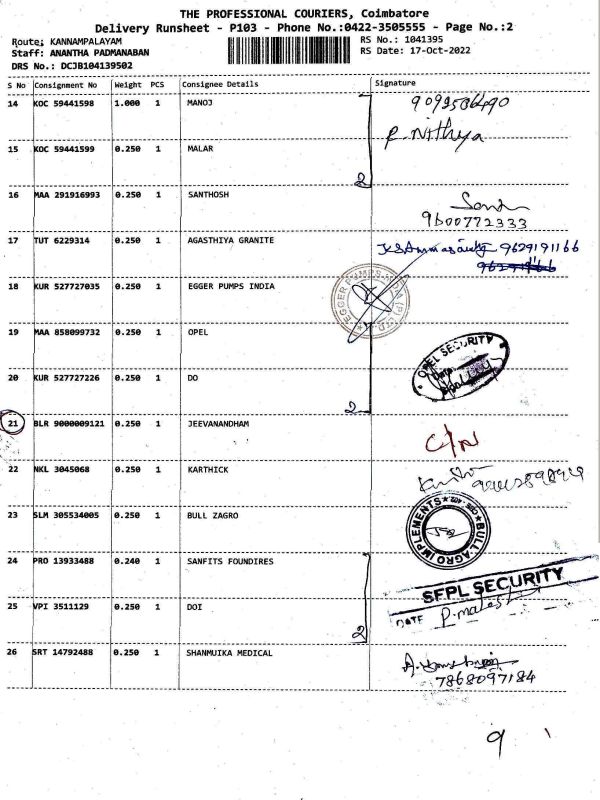 THE PROFESSIONAL COURIERS, Coimbatore
Delivery Runsheet - P103 - Phone No.:0422-3505555 - Page No.:2
Route: KANNAMPALAYAM
RS No.: 1041395
Staff: ANANTHA PADMANABAN
RS Date: 17-Oct-2022
DRS No.: DCJB104139502
S No Consignment No Weight PCS Consignee Details Signature
14 KOC 59441598 1.000 1 MANOJ
P. Nithya
15 KOC 59441599 0.250 1 MALAR
2
16 MAA 291916993 0.250 1 SANTHOSH
9600772333
17 TUT 6229314 0.250 1 AGASTHIYA GRANITE 9629191166
18 KUR 527727035 0.250 1 EGGER PUMPS INDIA
EGGER PUMPS INDIA (P) LTD
19 MAA 858099732 0.250 1 OPEL
OPEL SECURITY
20 KUR 527727226 0.250 1 DO
2
21 BLR 9000009121 0.250 1 JEEVANANDHAM C/N
22 NKL 3045068 0.250 1 KARTHICK
23 SLM 305534005 0.250 1 BULL ZAGRO
BULL AGRO IMPLEMENTS
24 PRO 13933488 0.240 1 SANFITS FOUNDIRES
SFPL SECURITY
25 VPI 3511129 0.250 1 DOI
DATE
2
26 SRT 14792488 0.250 1 SHANMUIKA MEDICAL
7868097184
9